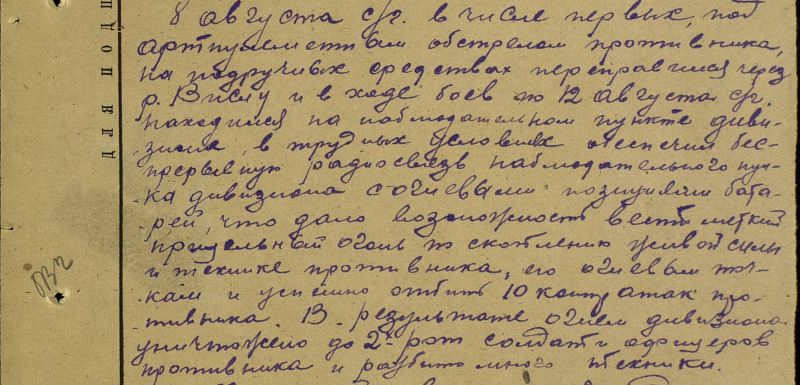 8 августа с/г. в числе первых, под
артпулеметным обстрелом противника,
на подручных средствах переправился через
р. Вислу и в ходе боев по 12 августа с/г.
находился на наблюдательном пункте диви-
зиона, в трудных условиях обеспечил бес-
прерывную радиосвязь наблюдательного пун-
ка дивизиона с огневыми позициями бата-
рей, что дало возможность вести меткий
прицельный огонь по скоплению живой силы
и технике противника, его огневым точ-
кам и успешно отбить 10 контратак про-
тивника. В результате огнем дивизиона
уничтожено до 2х рот солдат и офицеров
противника и разбито много техники.
для подш